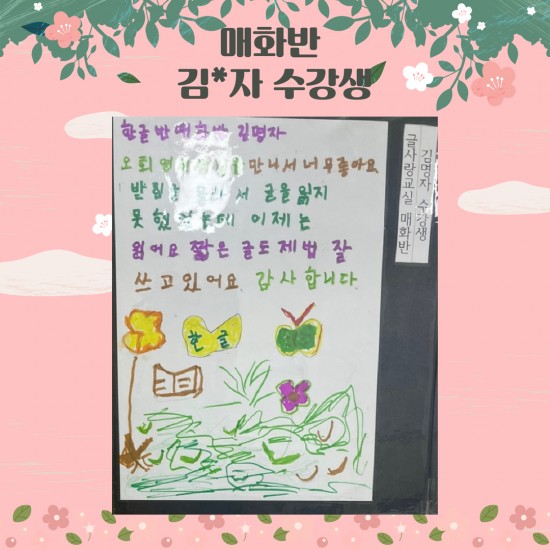 매화반
김*자 수강생
한글반매화반 김명자
만나서너무좋아요
받침을 몰라서 글을 읽지
못했었는데 이제는
읽어요 짧은 글도 제법 잘
쓰고있어요. 감사합니다.
한글
김명자 수강생
글사랑교실 매화반